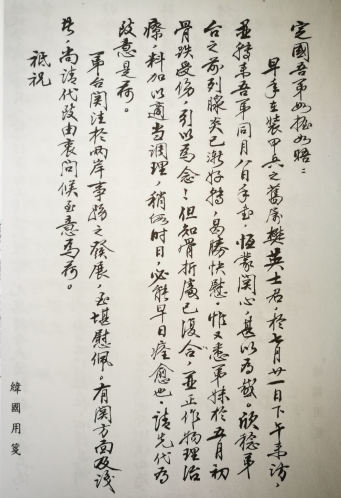 定國吾弟如握如晤：
早年在裝甲兵之舊屬樊英士君，於七月廿一日下午來訪，
並轉來吾弟同月八日手書，恆蒙關心，甚以為感。欣稔弟
台之前列腺炎已漸好轉，曷勝快慰，惟又悉弟妹於五月初
骨跌受傷，引以為念！但知骨折處已復合，並正作物理治
療，料加以適當調理，稍假時日，必能早日痊愈也，請先代為
致意是荷。
弟台關注於兩岸事務之發展，至堪慰佩。有關方面及淺
見，尚請代致由衷問候至意為荷。
祗祝
緯國用箋